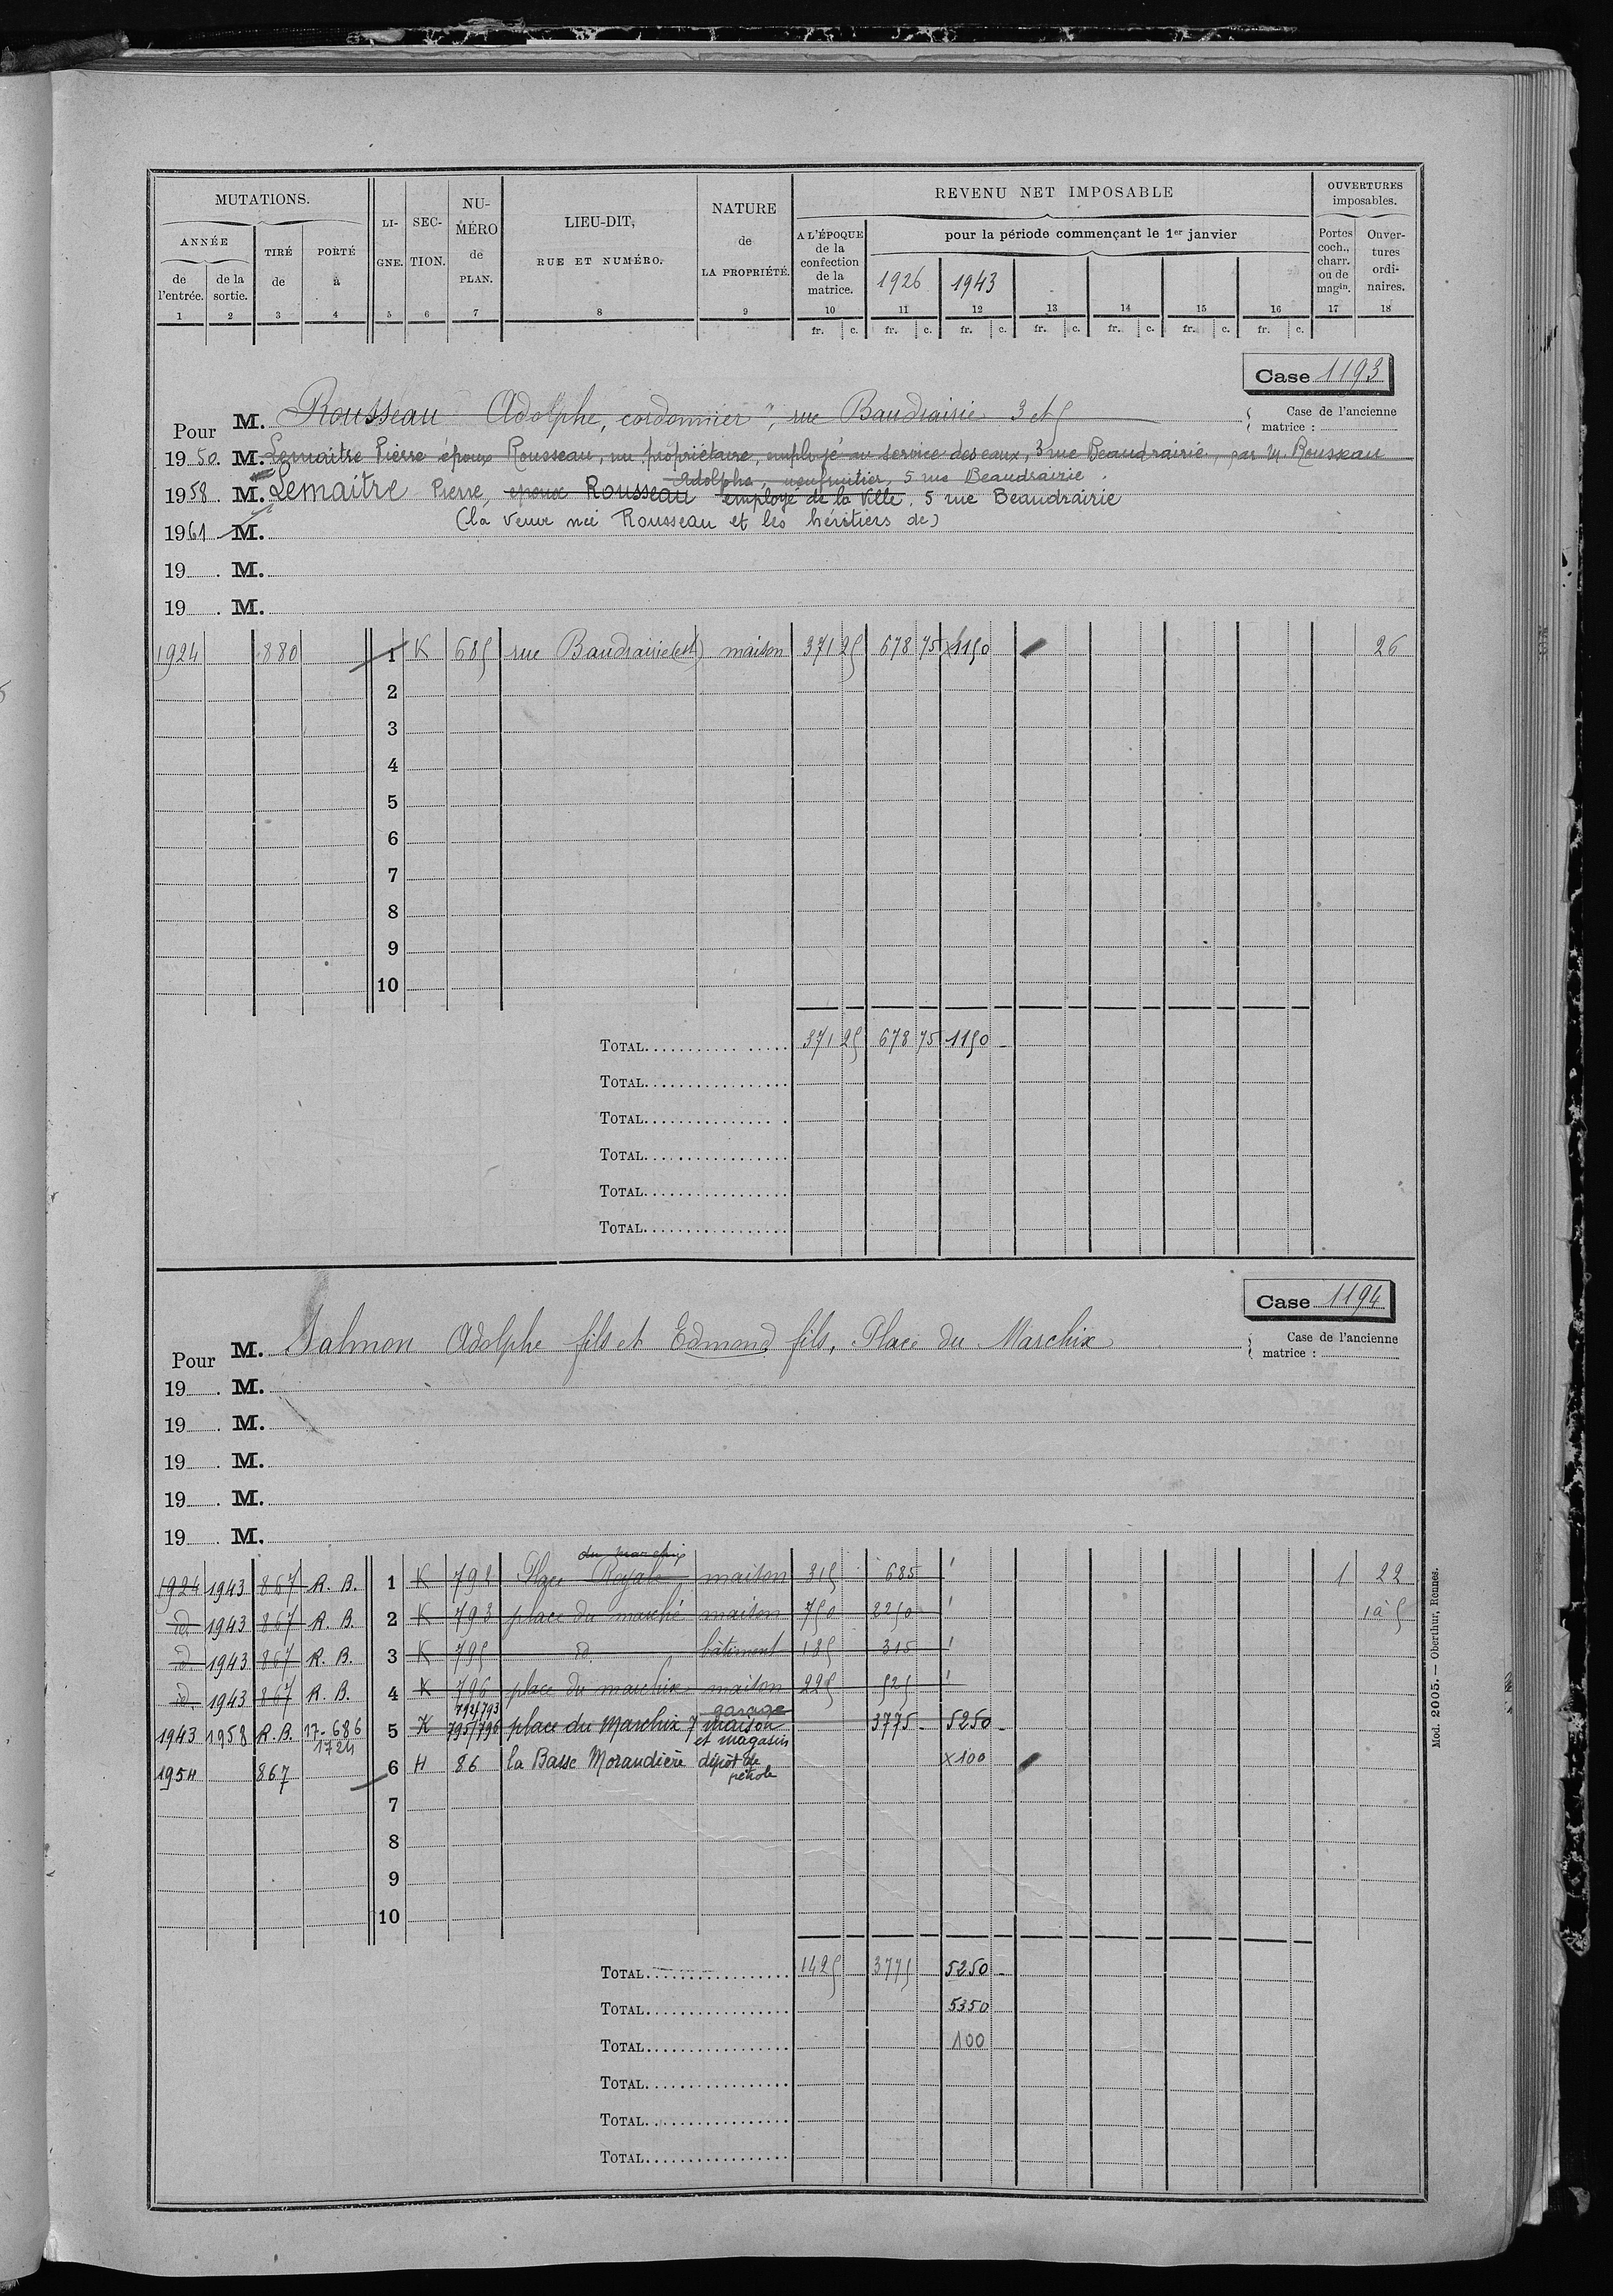 MUTATIONS. LI- GNE. SEC- TION. NU- MÉRO de PLAN. LIEU-DIT, RUE ET NUMÉRO. NATURE de LA PROPRIÉTÉ. REVENU NET IMPOSABLE OUVERTURES imposables.
ANNÉE TIRÉ de PORTÉ à A L'ÉPOQUE de la confection de la matrice. pour la période commençant le 1er janvier Portes coch., charr. ou de magin. Ouver- tures ordi- naires.
de l'entrée. de la sortie. 1926 1943
1 2 3 4 5 6 7 8 9 10 11 12 13 14 15 16 17 18
fr. c. fr. c. fr. c. fr. c. fr. c. fr. c. fr. c.
Case 1193
Pour M. Rousseau Adolphe, cordonnier, rue Baudrairie 3 et 5 Case de l'ancienne matrice :
1950. M. Lemaitre Pierre époux Rousseau, nu propriétaire, employé au service des eaux, 3 rue Beaudrairie, par M. Rousseau
Adolphe, usufruitier, 5 rue Beaudrairie
1958 M. Lemaitre Pierre, epoux Rousseau employé de la Ville, 5 rue Beaudrairie
(la veuve née Rousseau et les héritiers de)
1961 M.
19 . M.
19 . M.
1924 880 1 K 685 rue Baudrairie (est) maison 371 25 678 75 x1150 26
2
3
4
5
6
7
8
9
10
TOTAL 371 25 678 75 1150
TOTAL
TOTAL
TOTAL
TOTAL
TOTAL
Case 1194
Pour M. Salmon Adolphe fils et Edmond fils, Place du Marchix Case de l'ancienne matrice :
19 . M.
19 . M.
19 . M.
19 . M.
19 . M.
du marchix
1924 1943 867 R. B. 1 K 792 Place Royale maison 315 685 1 22
id 1943 867 R. B. 2 K 793 place du marché maison 750 2250 1 à 5
id. 1943 867 R. B. 3 K 795 id. bâtiment 135 315
id. 1943 867 R. B. 4 K 796 place du marchix maison 225 525
1943 1958 R. B. 17-686 1724 5 K 792/793 795/796 place du Marchix 7 garage maison et magasin 3775 5250
1954 867 6 H 86 la Basse Morandière dépôt de pétrole x100
7
8
9
10
TOTAL 1425 3775 5250
TOTAL 5350
TOTAL 100
TOTAL
TOTAL
TOTAL
Mod. 2005. — Oberthur, Rennes.